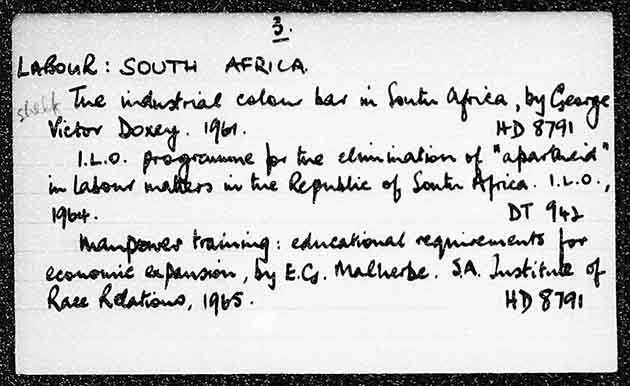 3.
LABOUR: SOUTH AFRICA.
The industrial colour bar in South Africa, by George
Victor Doxey. 1961. HD 8791
I.L.O. programme for the elimination of "apartheid"
in labour matters in the Republic of South Africa. I.L.O.,
1964. DT 942
Manpower training: educational requirements for
economic expansion, by E.G. Malherbe. S.A. Institute of
Race Relations, 1965. HD 8791